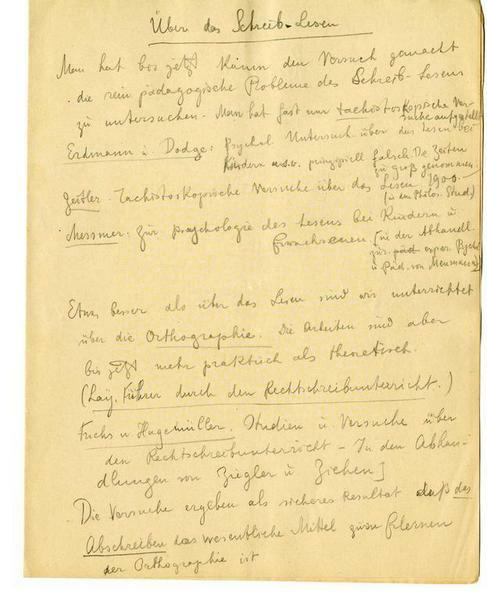 Über das Schreib-Lesen
Man hat bis jetzt kaum den Versuch gemacht
die rein pädagogische Probleme des Schreib-Lesens
zu untersuchen. Man hat fast nur tachistoskopische Ver-
suche aufgestellt
Erdmann u. Dodge: Psychol. Untersuch über das Lesen bei
Kindern u.s.w. prinzipiell falsch. Die Zeiten
zu groß genommen.
Zeitler. Tachistoskopische Versuche über das Lesen 1900.
(in den Philos. Stud.)
Messmer: Zur psychologie des Lesens bei Kindern u
Erwachsenen (in der Abhandl.
zur exper. Psych
u Päd. von Meumann)
Etwas besser als über das Lesen sind wir unterrichtet
über die Orthographie. Die Arbeiten sind aber
bis jetzt mehr praktisch als theoretisch.
(Lay. Führer durch den Rechtschreibunterricht.)
Fuchs u Hagemüller. Studien u Versuche über
den Rechtschreibunterricht - In den Abhan-
dlungen von Ziegler u Ziehen]
Die Versuche ergeben als sicheres Resultat daß das
Abschreiben das wesentliche Mittel zum Erlernen
der Orthographie ist